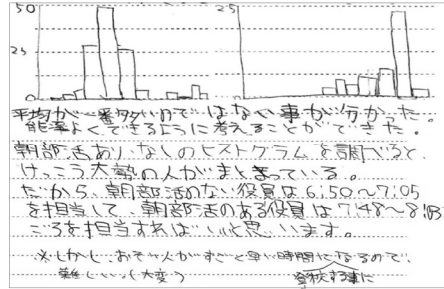 50
25
25
0
平均が一番多いのではない事が分かった。
能率よくできるように考えることができた。
朝部活ありなしのヒストグラムを調べると、
けっこう大勢の人がまとまっている。
だから、朝部活のない役員は6:50〜7:05
を担当して、朝部活のある役員は7:48〜8:03
ごろを担当すればいいと思います。
※しかし、おそい人がすごく早い時間になるので、
難しい。大変 登校する事に